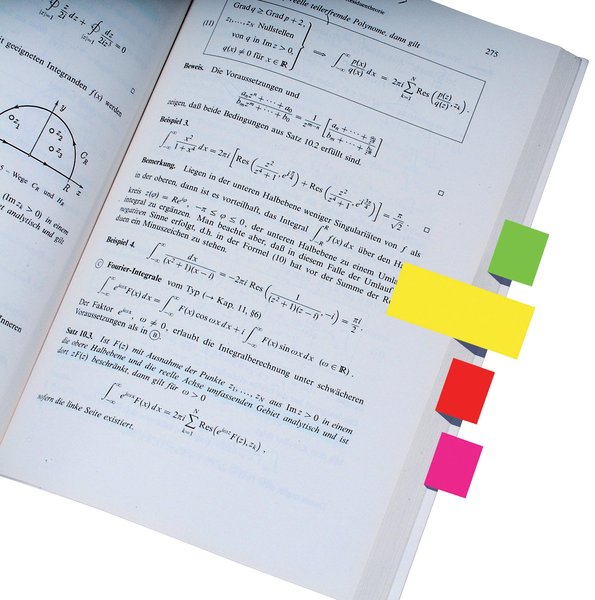 ∮ z/2i dz + ∮ z/2iz² dz = 0
|z|=1 |z|=1
mit geeigneten Integranden f(x) werden
y
z₁
z₂
z₃
C_R
R
z
5 – Wege C_R und H_R
(Im z_k > 0) in einem
et analytisch und gilt
Inneren
reelle teilerfremde Polynome, dann gilt
275
(11)
Grad q ≥ Grad p + 2,
z₁, ..., z_N Nullstellen
von q in Im z > 0,
q(x) ≠ 0 für x ∈ ℝ
⟹ ∫_{-∞}^{∞} p(x)/q(x) dx = 2πi ∑_{k=1}^{N} Res (p(z)/q(z), z_k).
Beweis. Die Voraussetzungen und
zeigen, daß beide Bedingungen aus Satz 10.2 erfüllt sind.
Beispiel 3.
Bemerkung. Liegen in der unteren Halbebene weniger Singularitäten von f als
in der oberen, dann ist es vorteilhaft, das Integral ∫_{-R}^{R} f(x) dx über den
kreis z(φ) = Re^{iφ}, −π ≤ φ ≤ 0, der unteren Halbebene zu einem
integral zu ergänzen. Man beachte aber, daß in diesem Falle der Umlauf
negativen Sinne erfolgt, d.h. in der Formel (10) hat vor der Summe der
duen ein Minuszeichen zu stehen.
Beispiel 4.
∫_{-∞}^{∞} dx/((x² + 1)(x − i)) = −2πi Res (1/((z² + 1)(z − i)), −i) = πi/2.
Ⓒ Fourier-Integrale vom Typ (→ Kap. 11, §6)
∫_{-∞}^{∞} e^{iωx} F(x) dx = ∫_{-∞}^{∞} F(x) cos ωx dx + i ∫_{-∞}^{∞} F(x) sin ωx dx (ω ∈ ℝ).
Der Faktor e^{iωx}, ω ≠ 0, erlaubt die Integralberechnung unter schwächeren
Voraussetzungen als in Ⓑ.
Satz 10.3. Ist F(z) mit Ausnahme der Punkte z₁, ..., z_N aus Im z > 0 in einem
die obere Halbebene und die reelle Achse umfassenden Gebiet analytisch und ist
dort zF(z) beschränkt, dann gilt für ω > 0
∫_{-∞}^{∞} e^{iωx} F(x) dx = 2πi ∑_{k=1}^{N} Res(e^{iωz} F(z), z_k),
sofern die linke Seite existiert.